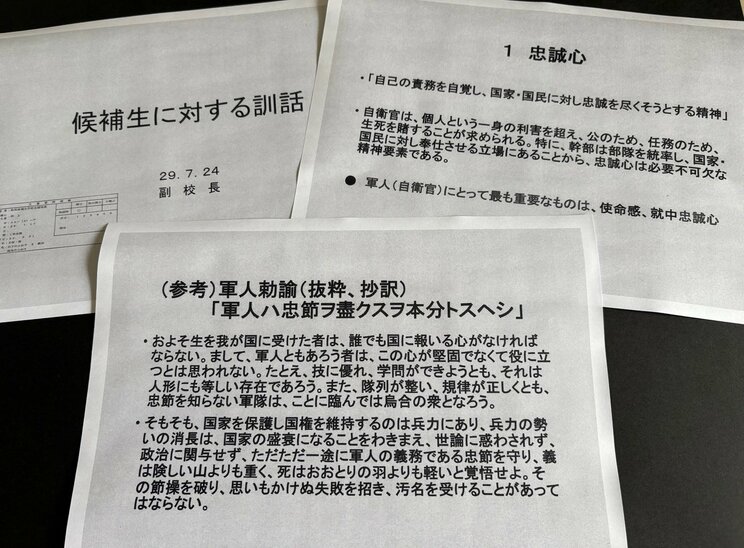 候補生に対する訓話
29.7.24
副校長
1 忠誠心
・「自己の責務を自覚し、国家・国民に対し忠誠を尽くそうとする精神」
・自衛官は、個人という一身の利害を超え、公のため、任務のため、
生死を賭することが求められる。特に、幹部は部隊を統率し、国家・
国民に対し奉仕させる立場にあることから、忠誠心は必要不可欠な
精神要素である。
● 軍人(自衛官)にとって最も重要なものは、使命感、就中忠誠心
(参考)軍人勅諭(抜粋、抄訳)
「軍人ハ忠節ヲ盡クスヲ本分トスヘシ」
・およそ生を我が国に受けた者は、誰でも国に報いる心がなければ
ならない。まして、軍人ともあろう者は、この心が堅固でなくて役に立
つとは思われない。たとえ、技に優れ、学問ができようとも、それは
人形にも等しい存在であろう。また、隊列が整い、規律が正しくとも、
忠節を知らない軍隊は、ことに臨んでは烏合の衆となろう。
・そもそも、国家を保護し国権を維持するのは兵力にあり、兵力の勢
いの消長は、国家の盛衰になることをわきまえ、世論に惑わされず、
政治に関与せず、ただただ一途に軍人の義務である忠節を守り、義
は険しい山よりも重く、死はおおとりの羽よりも軽いと覚悟せよ。そ
の節操を破り、思いもかけぬ失敗を招き、汚名を受けることがあって
はならない。